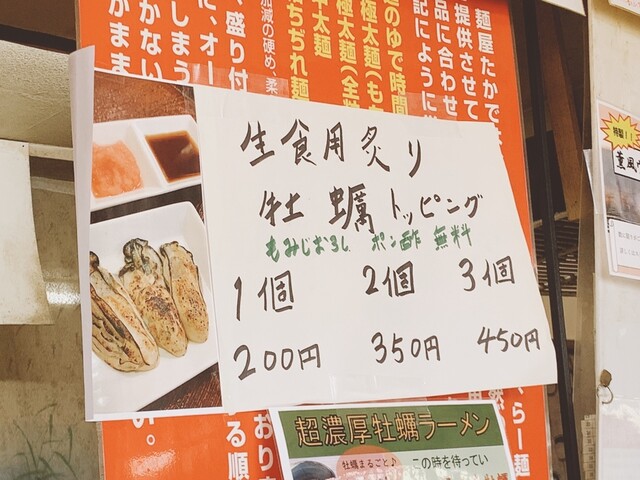 生食用炙り
牡蠣トッピング
もみじおろし ポン酢 無料
1個 2個 3個
200円 350円 450円
超濃厚牡蠣ラーメン
牡蠣まるごと♪
この時を待ってい
麺屋たかで
提供させて
品に合わせ
記にように
のゆで時間
極太麺（も
極太麺（全
ちぢれ麺
加減の硬め、柔
、盛り付
に、オー
しまう
かない
かまま
らー麺
る順
おり
い。
特製!!
薫風